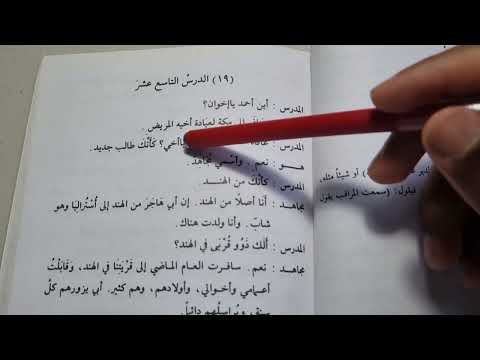 (١٩) الدرسُ التاسع عشرَ
المدرس : أين أحمد ياإخوان؟
مكة لعيادة أخيه المريض.
المدرس : ياأخي؟ كأنّك طالب جديد.
هـــو : نعم. وأسمي مجاهد.
المدرس : كأنّك من الهنـد.
مجاهـد : أنا أصلًا من الهند. إن أبي هَاجَرَ من الهند إلى أُسْتُرالِيَا وهو
شابّ. وأنا ولدت هناك.
المدرس : أَلَكَ ذَوُو قُرْبَى في الهند؟
مجاهـد : نعم. سافرت العام الماضي إلى قَرْيَتِنَا في الهند، وَقَابَلْتُ
أعمامي وأخوالي، وأولادهم، وهم كثير. أبي يزورهم كلَّ
سنة، ويُراسِلُهم دائماً.
أو شيئاً مثله،
فيقول: (سمعت المراقب يقول